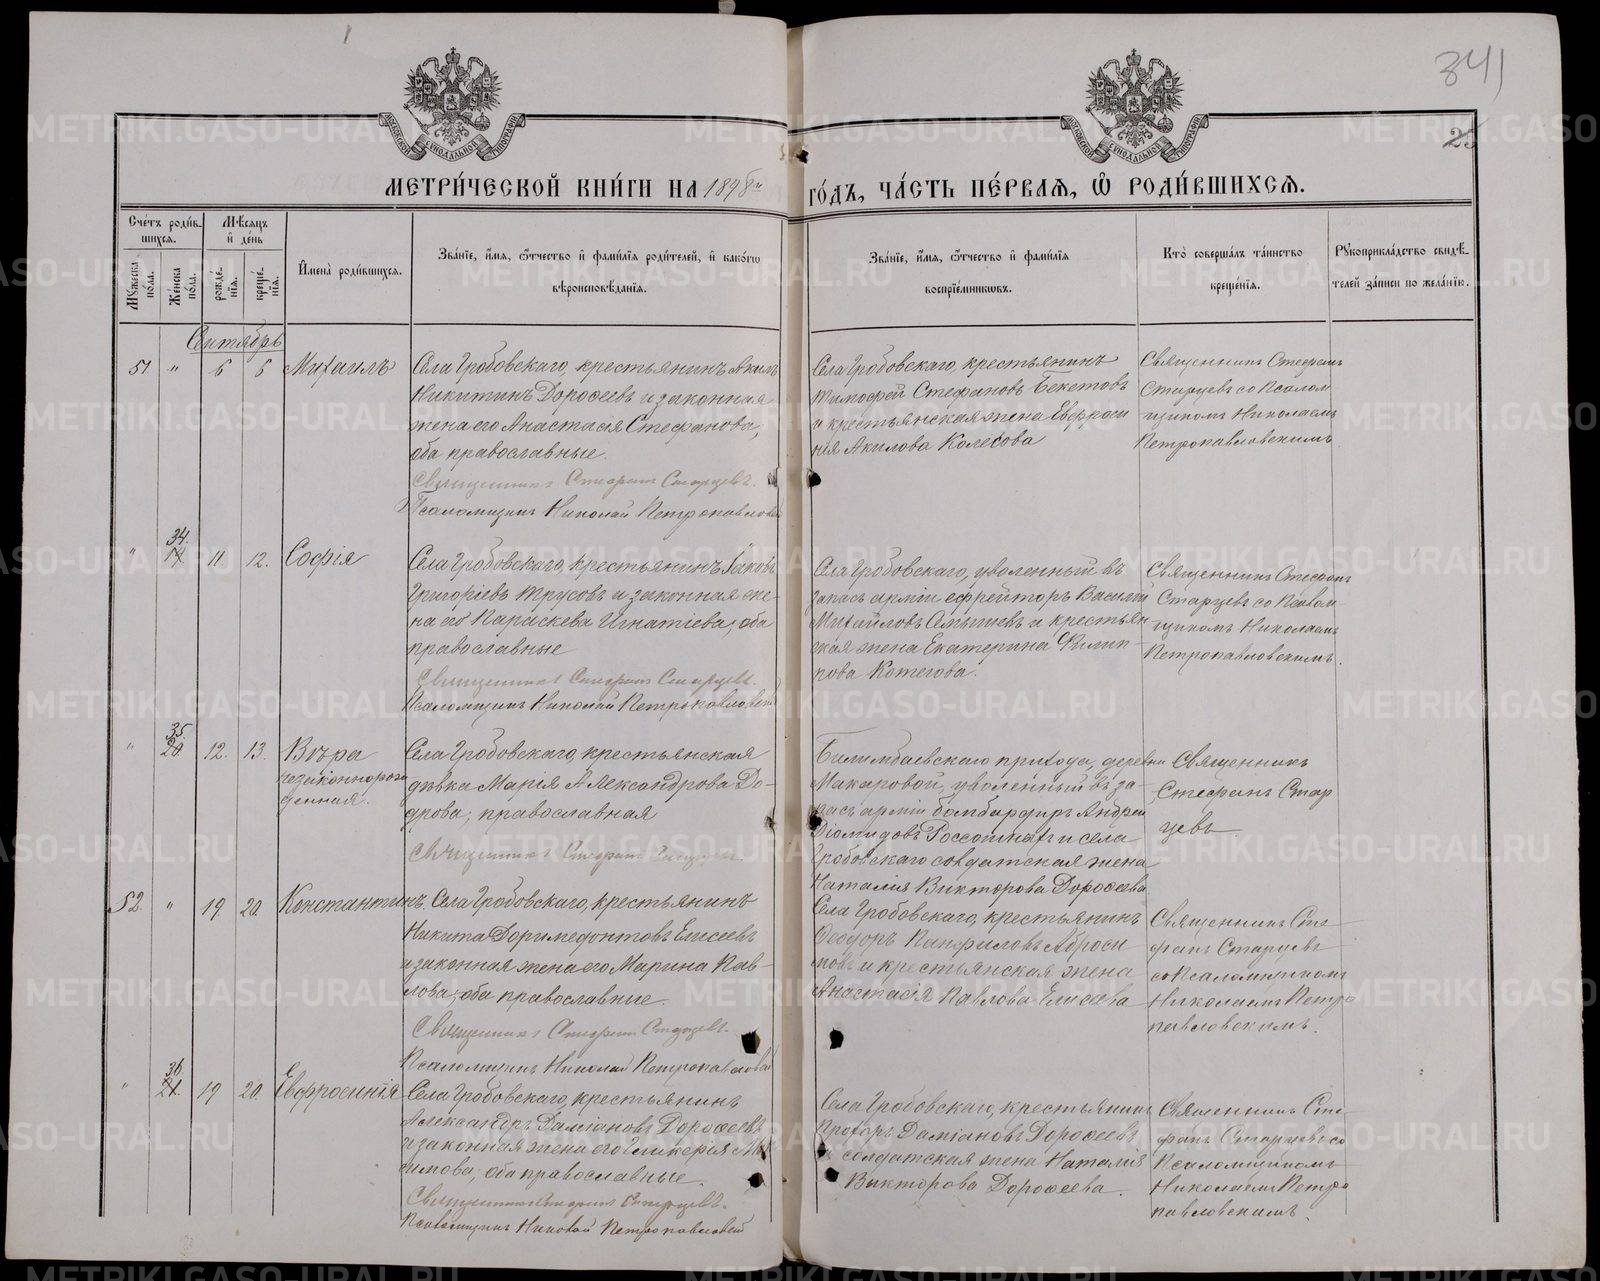 341
25
МОСКОВСКОЙ СѴНОДАЛЬНОЙ ТИПОГРАФІИ
МОСКОВСКОЙ СѴНОДАЛЬНОЙ ТИПОГРАФІИ
МЕТРИ́ЧЕСКОЙ КНИ́ГИ НА 1898й ГО́ДЪ, ЧА́СТЬ ПЕ́РВАѦ, Ѡ РОДИ́ВШИХСѦ.
Сче́тъ роди́вшихся.
Мꙋ́жеска по́ла.
Же́нска по́ла.
Мѣ́сяцъ и де́нь
рожде́нїя.
креще́нїя.
И҆мена̀ роди́вшихся.
Зва́нїе, и҆́мя, ѻ҆́тчество и҆ фами́лїя роди́телей, и҆ како́гѡ вѣроисповѣ́данїя.
Зва́нїе, и҆́мя, ѻ҆́тчество и҆ фами́лїя воспрїе́мникѡвъ.
Кто̀ соверша́лъ та́инство креще́нїя.
Рꙋкоприкла́дство свидѣ́телей за́писи по жела́нїю.
Сентябрь
51 " 6 6 Михаилъ
Села Гробовскаго, крестьянинъ Акимъ
Никитинъ Дорофеевъ и законная
жена его Анастасія Стефанова,
оба православные.
Священникъ Стефанъ Старцевъ.
Псаломщикъ Николай Петропавловскій
Села Гробовскаго крестьянинъ
Тимофей Стефановъ Бекетовъ
и крестьянская жена Евфроси
нія Акилова Колесова
Священникъ Стефанъ
Старцевъ со Псалом
щикомъ Николаемъ
Петропавловскимъ.
" 34. 11 12. Софія
Села Гробовскаго, крестьянинъ Іаковъ
Григоріевъ Трусовъ и законная же-
на его Параскева Игнатіева, оба
православные
Священникъ Стефанъ Старцевъ.
Псаломщикъ Николай Петропавловскій
Села Гробовскаго, уволенный въ
запасъ арміи ефрейторъ Василій
Михайловъ и крестьян
ская жена Екатерина Филип-
пова Котегова.
Священникъ Стефанъ
Старцевъ со Псалом-
щикомъ Николаемъ
Петропавловскимъ.
" 35. 20. 12. 13. Вѣра
незаконнорож
денная.
Села Гробовскаго, крестьянская
дѣвка Марія Александрова До-
православная
Священникъ Стефанъ Старцевъ.
Билимбаевскаго прихода, деревни
Макаровой, уволенный въ за-
пасъ арміи бомбардиръ Андрей
Діомидовъ и села
Гробовскаго солдатская жена
Наталія Викторова Дорофеева.
Священникъ
Стефанъ Стар
цевъ
52. " 19 20. Константинъ.
Села Гробовскаго, крестьянинъ
Никита Доримедонтовъ Елисеевъ
и законная жена его Марина Пав-
лова, оба православные.
Священникъ Стефанъ Старцевъ.
Псаломщикъ Николай Петропавловскій
Села Гробовскаго, крестьянинъ
Феодоръ Панфиловъ Аброси
мовъ и крестьянская жена
Анастасія Павлова Елисеева
Священникъ Сте-
фанъ Старцевъ
со Псаломщикомъ
Николаемъ Петро
павловскимъ.
" 36 21. 19 20. Евфросинія
Села Гробовскаго, крестьянинъ
Александръ Даміановъ Дорофеевъ
и законная жена его Гликерія Мак-
симова, оба православные.
Священникъ Стефанъ Старцевъ.
Псаломщикъ Николай Петропавловскій
Села Гробовскаго, крестьянинъ
Прохоръ Даміановъ Дорофеевъ
и солдатская жена Наталія
Викторова Дорофеева.
Священникъ Сте-
фанъ Старцевъ со
Псаломщикомъ
Николаемъ Петро
павловскимъ.
METRIKI.GASO-URAL.RU